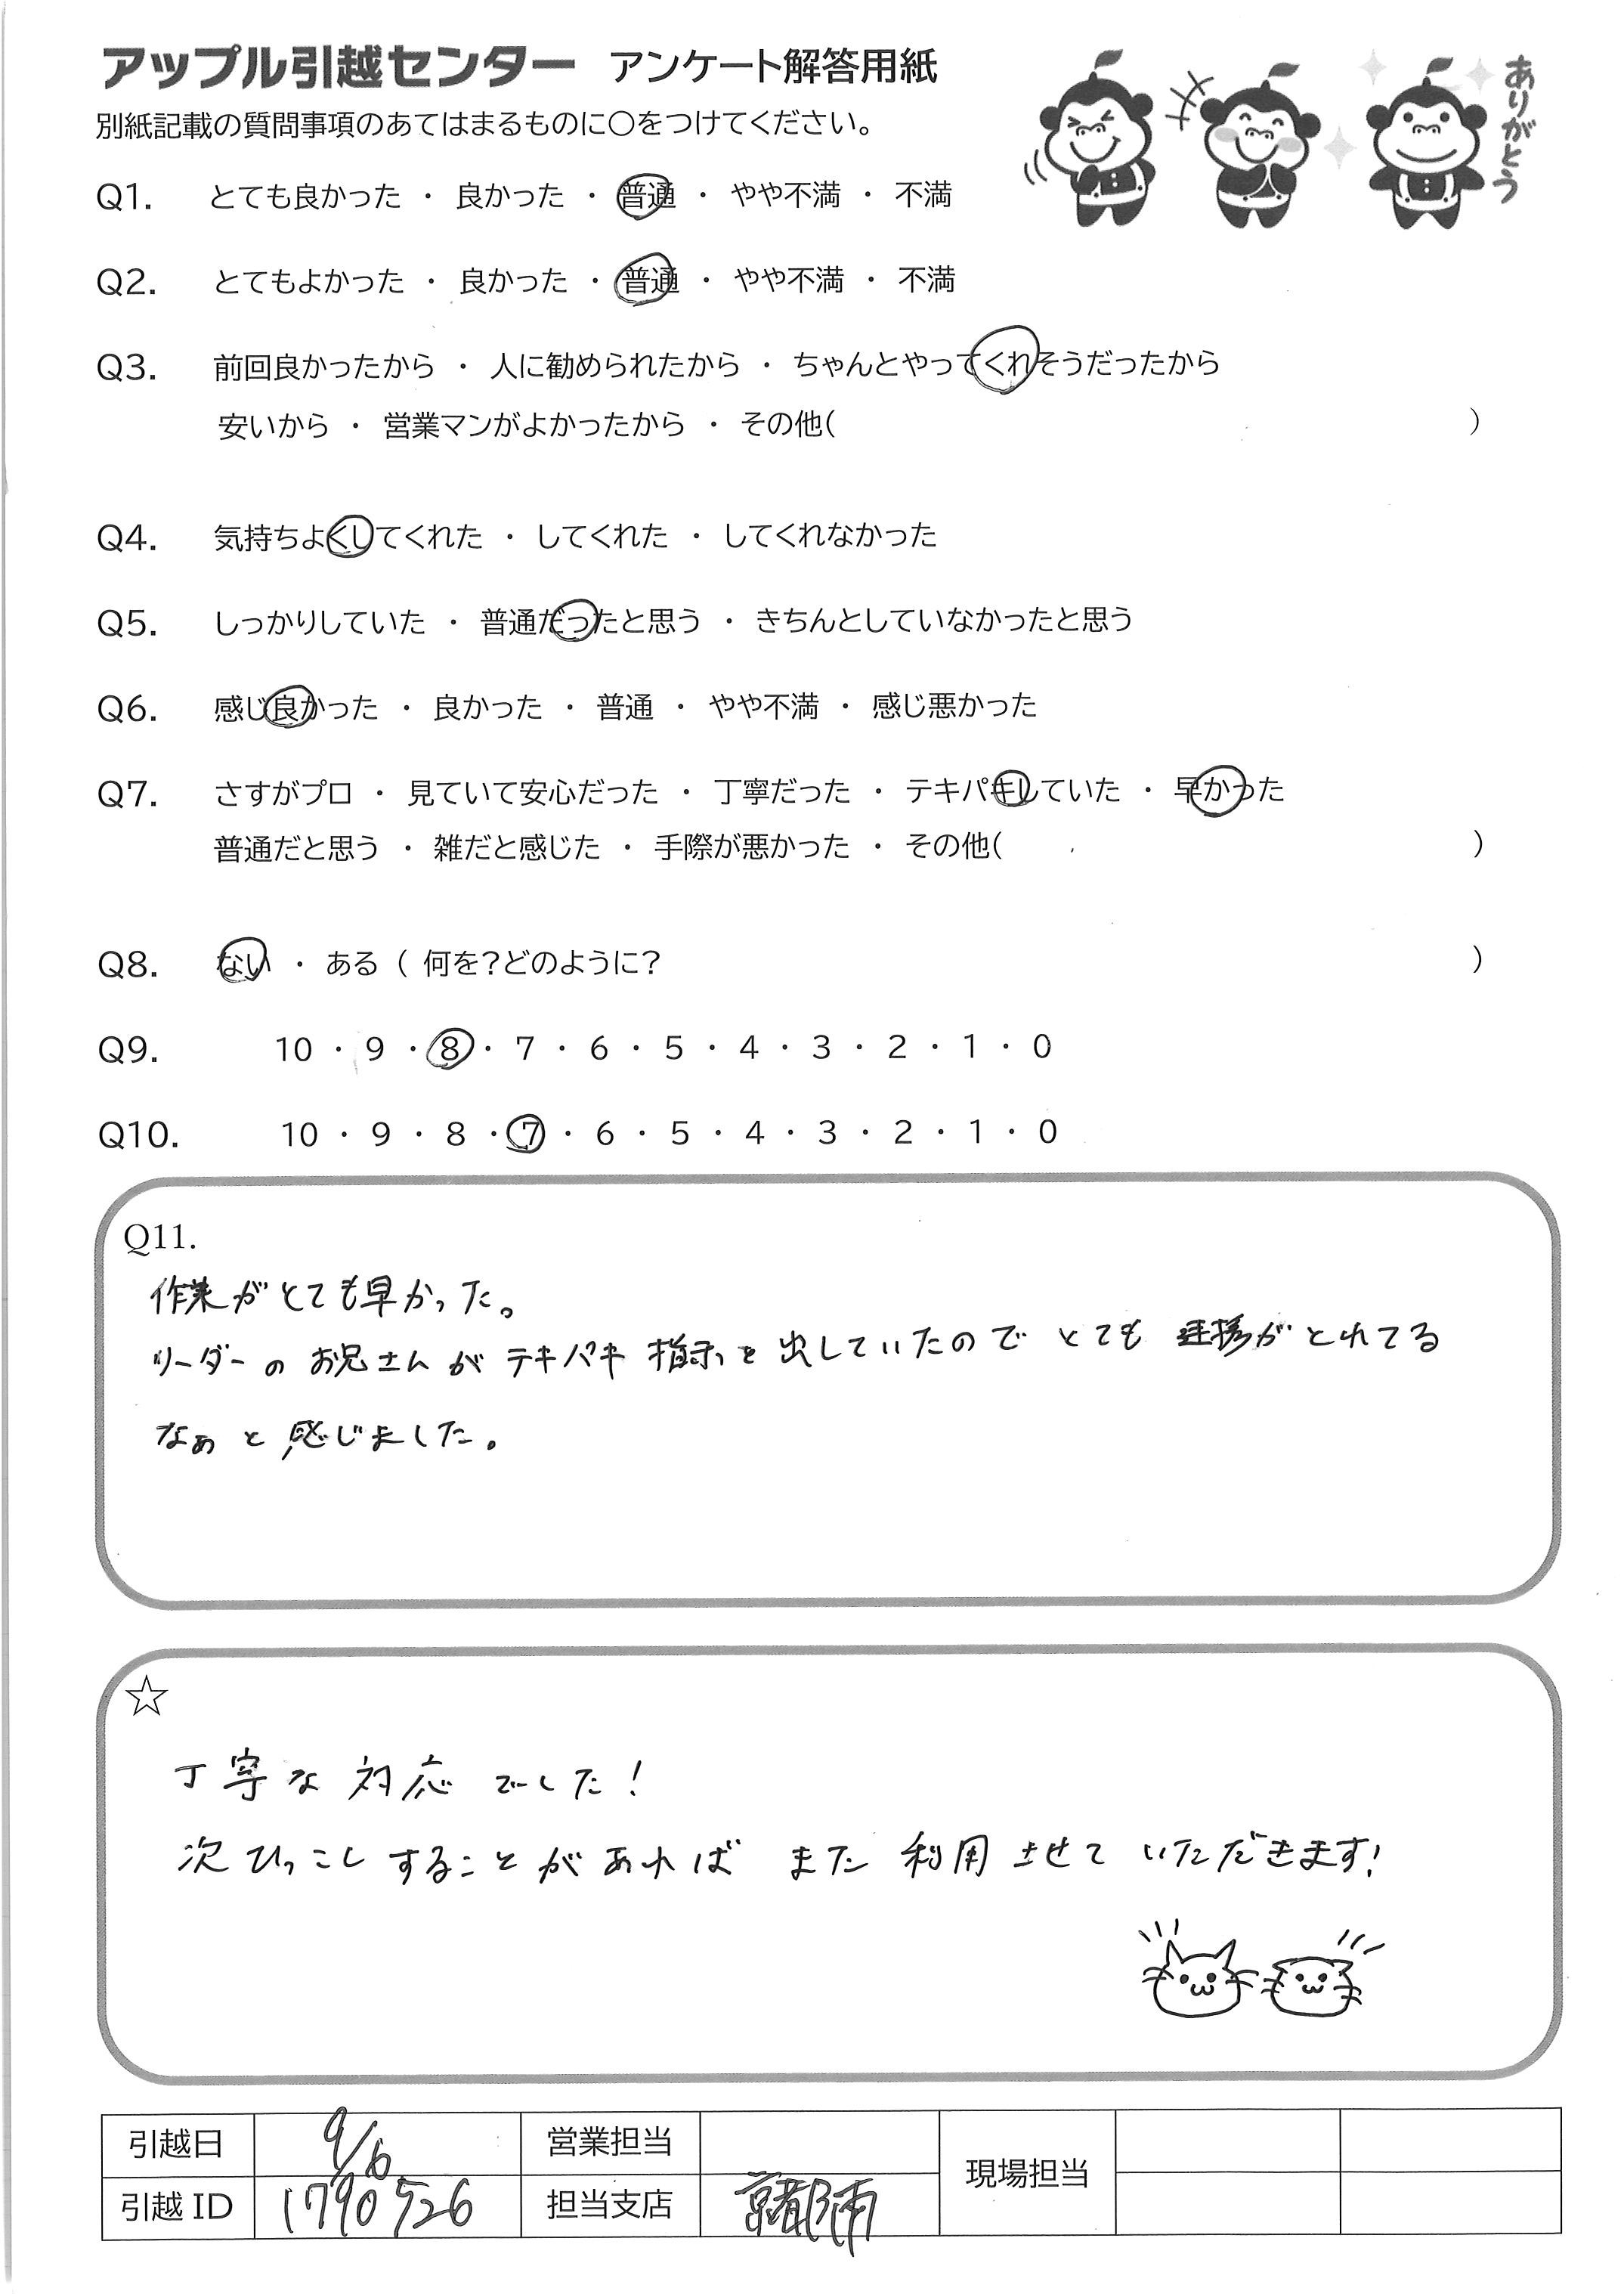 アップル引越センター アンケート解答用紙
別紙記載の質問事項のあてはまるものに○をつけてください。
ありがとう
Q1. とても良かった ・ 良かった ・ 普通 ・ やや不満 ・ 不満
Q2. とてもよかった ・ 良かった ・ 普通 ・ やや不満 ・ 不満
Q3. 前回良かったから ・ 人に勧められたから ・ ちゃんとやってくれそうだったから
安いから ・ 営業マンがよかったから ・ その他( )
Q4. 気持ちよくしてくれた ・ してくれた ・ してくれなかった
Q5. しっかりしていた ・ 普通だったと思う ・ きちんとしていなかったと思う
Q6. 感じ良かった ・ 良かった ・ 普通 ・ やや不満 ・ 感じ悪かった
Q7. さすがプロ ・ 見ていて安心だった ・ 丁寧だった ・ テキパキしていた ・ 早かった
普通だと思う ・ 雑だと感じた ・ 手際が悪かった ・ その他( )
Q8. ない ・ ある ( 何を?どのように? )
Q9. 10 ・ 9 ・ 8 ・ 7 ・ 6 ・ 5 ・ 4 ・ 3 ・ 2 ・ 1 ・ 0
Q10. 10 ・ 9 ・ 8 ・ 7 ・ 6 ・ 5 ・ 4 ・ 3 ・ 2 ・ 1 ・ 0
Q11.
作業がとても早かった。
リーダーのお兄さんがテキパキ指示を出していたのでとても連携がとれてる
なぁと感じました。
☆
丁寧な対応でした!
次ひっこしすることがあればまた利用させていただきます!
引越日 9/6 営業担当 現場担当
引越ID 1790526 担当支店 京都南